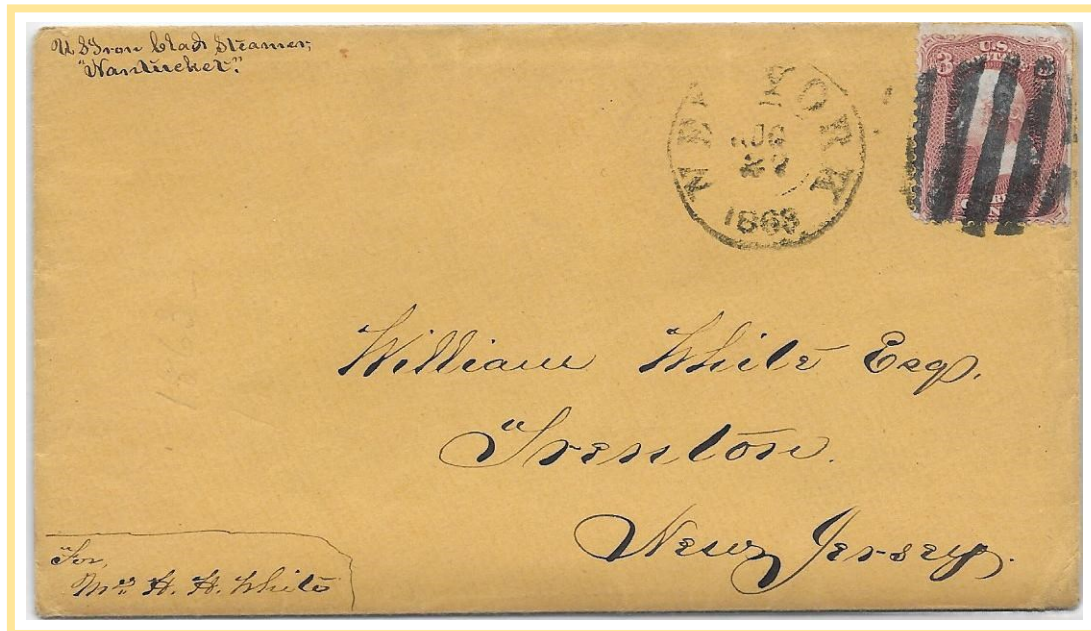 U.S Iron Clad Steamer,
"Nantucket."
NEW YORK
AUG
27
1863
3 U.S. 3
William White Esq.
Trenton.
New Jersey.
For,
Mrs H. H. White